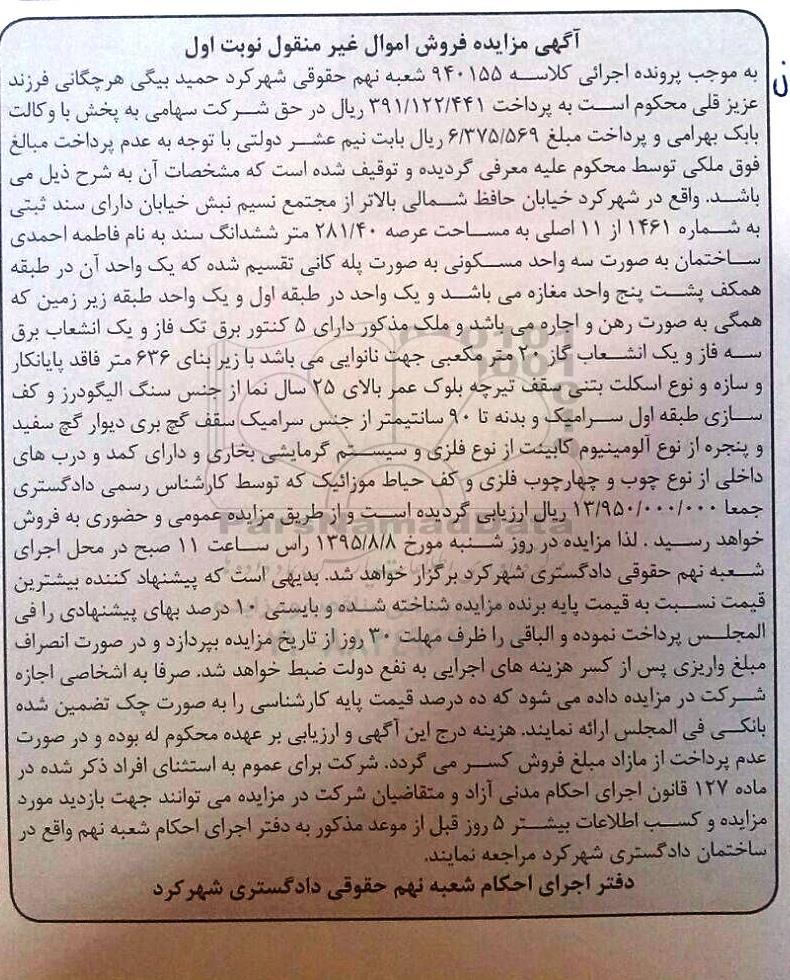 آگهی مزایده فروش اموال غیر منقول نوبت اول
به موجب پرونده اجرائی کلاسه ۹۴۰۱۵۵ شعبه نهم حقوقی شهرکرد حمید بیگی هرچگانی فرزند
عزیز قلی محکوم است به پرداخت ۳۹۱/۱۲۲/۴۴۱ ریال در حق شرکت سهامی به پخش با وکالت
بابک بهرامی و پرداخت مبلغ ۶/۳۷۵/۵۶۹ ریال بابت نیم عشر دولتی با توجه به عدم پرداخت مبالغ
فوق ملکی توسط محکوم علیه معرفی گردیده و توقیف شده است که مشخصات آن به شرح ذیل می
باشد. واقع در شهرکرد خیابان حافظ شمالی بالاتر از مجتمع نسیم نبش خیابان دارای سند ثبتی
به شماره ۱۴۶۱ از ۱۱ اصلی به مساحت عرصه ۲۸۱/۴۰ متر ششدانگ سند به نام فاطمه احمدی
ساختمان به صورت سه واحد مسکونی به صورت پله کانی تقسیم شده که یک واحد آن در طبقه
همکف پشت پنج واحد مغازه می باشد و یک واحد در طبقه اول و یک واحد طبقه زیر زمین که
همگی به صورت رهن و اجاره می باشد و ملک مذکور دارای ۵ کنتور برق تک فاز و یک انشعاب برق
سه فاز و یک انشعاب گاز ۲۰ متر مکعبی جهت نانوایی می باشد با زیر بنای ۶۳۶ متر فاقد پایانکار
و سازه و نوع اسکلت بتنی سقف تیرچه بلوک عمر بالای ۲۵ سال نما از جنس سنگ الیگودرز و کف
سازی طبقه اول سرامیک و بدنه تا ۹۰ سانتیمتر از جنس سرامیک سقف گچ بری دیوار گچ سفید
و پنجره از نوع آلومینیوم کابینت از نوع فلزی و سیستم گرمایشی بخاری و دارای کمد و درب های
داخلی از نوع چوب و چهارچوب فلزی و کف حیاط موزائیک که توسط کارشناس رسمی دادگستری
جمعا ۱۳/۹۵۰/۰۰۰/۰۰۰ ریال ارزیابی گردیده است و از طریق مزایده عمومی و حضوری به فروش
خواهد رسید . لذا مزایده در روز شنبه مورخ ۱۳۹۵/۸/۸ راس ساعت ۱۱ صبح در محل اجرای
شعبه نهم حقوقی دادگستری شهرکرد برگزار خواهد شد. بدیهی است که پیشنهاد کننده بیشترین
قیمت نسبت به قیمت پایه برنده مزایده شناخته شده و بایستی ۱۰ درصد بهای پیشنهادی را فی
المجلس پرداخت نموده و الباقی را ظرف مهلت ۳۰ روز از تاریخ مزایده بپردازد و در صورت انصراف
مبلغ واریزی پس از کسر هزینه های اجرایی به نفع دولت ضبط خواهد شد. صرفا به اشخاصی اجازه
شرکت در مزایده داده می شود که ده درصد قیمت پایه کارشناسی را به صورت چک تضمین شده
بانکی فی المجلس ارائه نمایند. هزینه درج این آگهی و ارزیابی بر عهده محکوم له بوده و در صورت
عدم پرداخت از مازاد مبلغ فروش کسر می گردد. شرکت برای عموم به استثنای افراد ذکر شده در
ماده ۱۲۷ قانون اجرای احکام مدنی آزاد و متقاضیان شرکت در مزایده می توانند جهت بازدید مورد
مزایده و کسب اطلاعات بیشتر ۵ روز قبل از موعد مذکور به دفتر اجرای احکام شعبه نهم واقع در
ساختمان دادگستری شهرکرد مراجعه نمایند.
دفتر اجرای احکام شعبه نهم حقوقی دادگستری شهرکرد
ParsNamadData